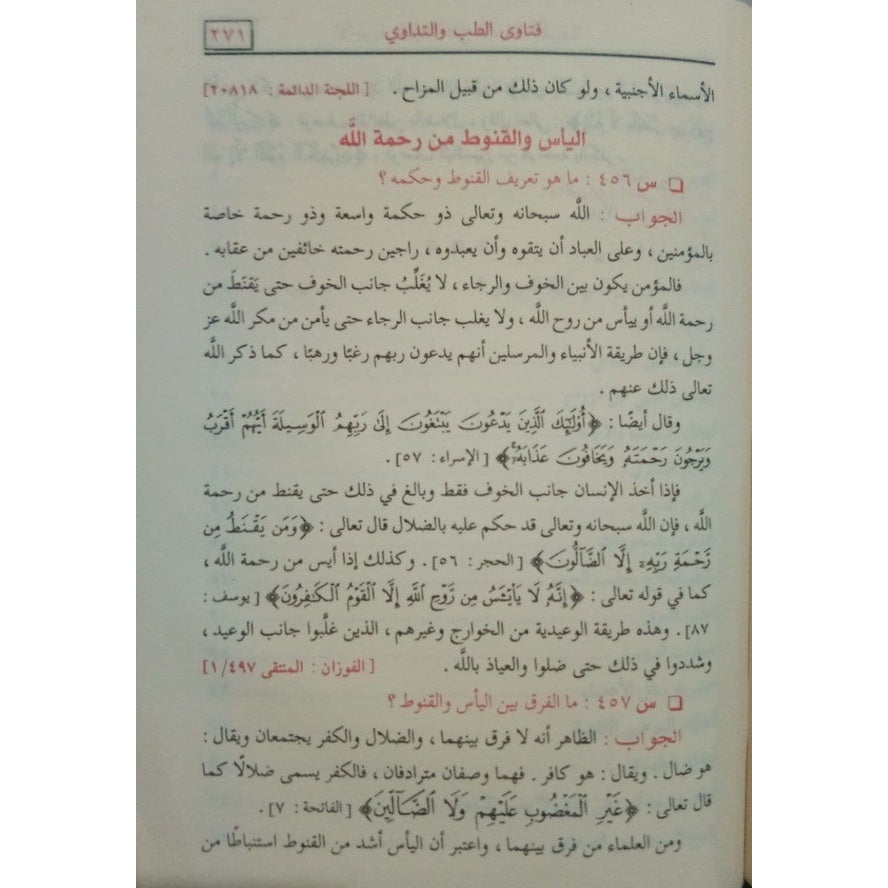 فتاوى الطب والتداوي
٢٧١
الأسماء الأجنبية ، ولو كان ذلك من قبيل المزاح . [ اللجنة الدائمة : ٢٠٨١٨]
اليأس والقنوط من رحمة اللَّه
❑ س ٤٥٦ : ما هو تعريف القنوط وحكمه ؟
الجواب : اللَّه سبحانه وتعالى ذو حكمة واسعة وذو رحمة خاصة
بالمؤمنين ، وعلى العباد أن يتقوه وأن يعبدوه ، راجين رحمته خائفين من عقابه .
فالمؤمن يكون بين الخوف والرجاء ، لا يُغَلِّبُ جانب الخوف حتى يَقنَطَ من
رحمة اللَّه أو ييأس من روح اللَّه ، ولا يغلب جانب الرجاء حتى يأمن من مكر اللَّه عز
وجل ، فإن طريقة الأنبياء والمرسلين أنهم يدعون ربهم رغبًا ورهبًا ، كما ذكر اللَّه
تعالى ذلك عنهم .
وقال أيضًا : ﴿أُوْلَٰٓئِكَ ٱلَّذِينَ يَدْعُونَ يَبْتَغُونَ إِلَىٰ رَبِّهِمُ ٱلْوَسِيلَةَ أَيُّهُمْ أَقْرَبُ
وَيَرْجُونَ رَحْمَتَهُۥ وَيَخَافُونَ عَذَابَهُۥٓۚ﴾ [ الإسراء : ٥٧] .
فإذا أخذ الإنسان جانب الخوف فقط وبالغ في ذلك حتى يقنط من رحمة
اللَّه ، فإن اللَّه سبحانه وتعالى قد حكم عليه بالضلال قال تعالى : ﴿وَمَن يَقْنَطُ مِن
رَّحْمَةِ رَبِّهِۦٓ إِلَّا ٱلضَّآلُّونَ﴾ [ الحجر : ٥٦] . وكذلك إذا أيس من رحمة اللَّه ،
كما في قوله تعالى : ﴿إِنَّهُۥ لَا يَاْيْـَٔسُ مِن رَّوْحِ ٱللَّهِ إِلَّا ٱلْقَوْمُ ٱلْكَٰفِرُونَ﴾ [ يوسف :
٨٧] . وهذه طريقة الوعيدية من الخوارج وغيرهم ، الذين غلَّبوا جانب الوعيد ،
وشددوا في ذلك حتى ضلوا والعياذ باللَّه . [ الفوزان : المنتقى ١/٤٩٧]
❑ س ٤٥٧ : ما الفرق بين اليأس والقنوط ؟
الجواب : الظاهر أنه لا فرق بينهما ، والضلال والكفر يجتمعان ويقال :
هو ضال . ويقال : هو كافر . فهما وصفان مترادفان ، فالكفر يسمى ضلالًا كما
قال تعالى : ﴿غَيْرِ ٱلْمَغْضُوبِ عَلَيْهِمْ وَلَا ٱلضَّآلِّينَ﴾ [ الفاتحة : ٧] .
ومن العلماء من فرق بينهما ، واعتبر أن اليأس أشد من القنوط استنباطًا من